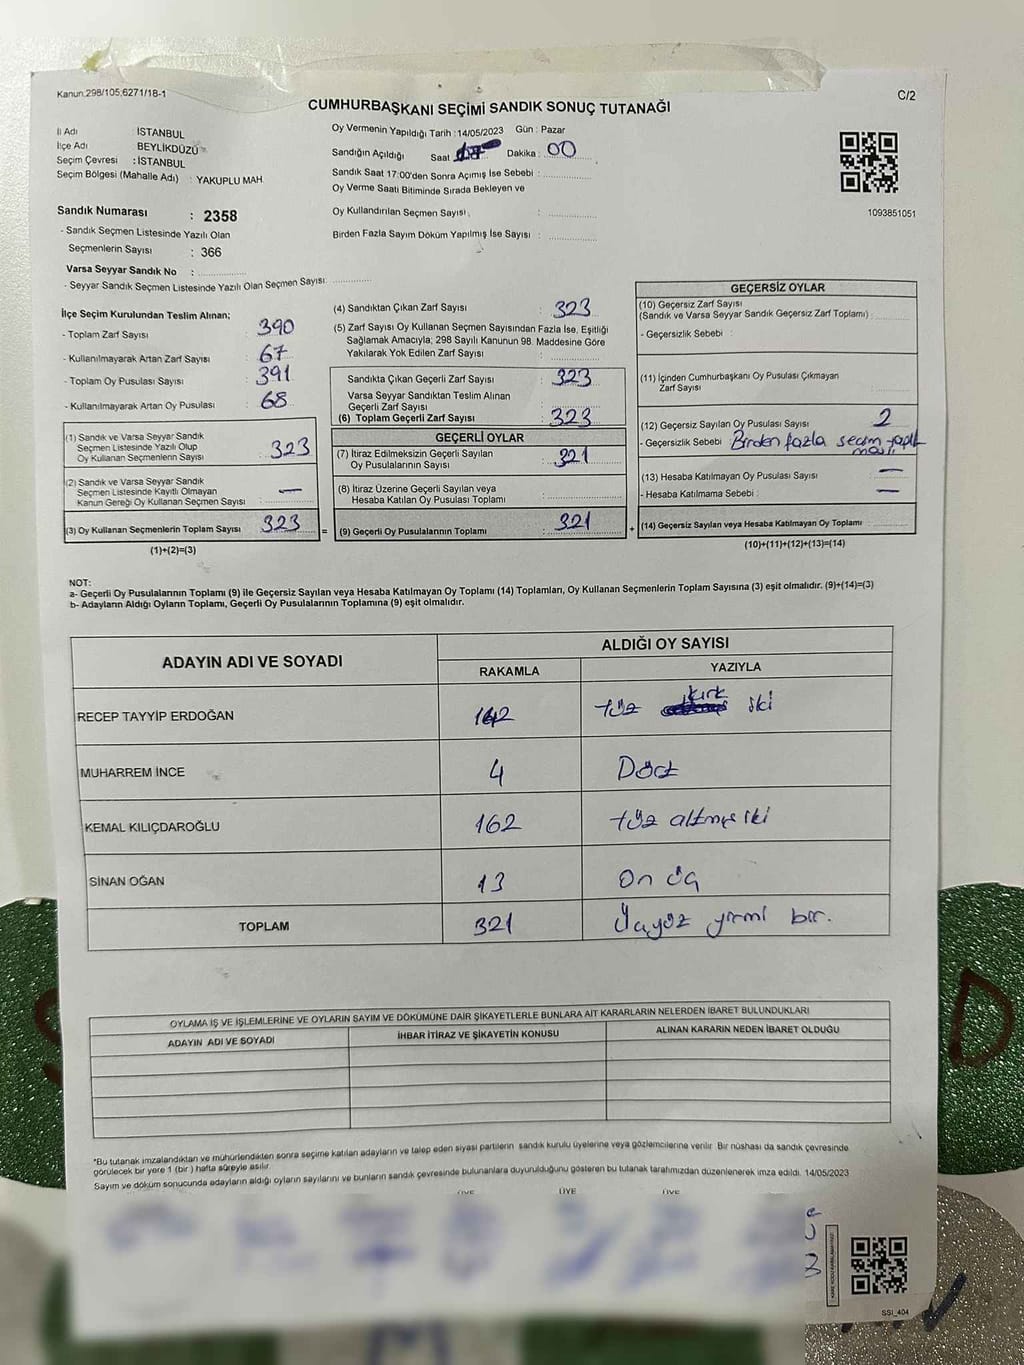 Kanun.298/105,6271/18-1
C/2
CUMHURBAŞKANI SEÇİMİ SANDIK SONUÇ TUTANAĞI
İl Adı : İSTANBUL
İlçe Adı : BEYLİKDÜZÜ
Seçim Çevresi : İSTANBUL
Seçim Bölgesi (Mahalle Adı) : YAKUPLU MAH.
Oy Vermenin Yapıldığı Tarih : 14/05/2023 Gün : Pazar
Sandığın Açıldığı Saat Dakika : 00
Sandık Saat 17:00'den Sonra Açımış İse Sebebi :
Oy Verme Saati Bitiminde Sırada Bekleyen ve
Oy Kullandırılan Seçmen Sayısı :
Birden Fazla Sayım Döküm Yapılmış İse Sayısı :
1093851051
Sandık Numarası : 2358
- Sandık Seçmen Listesinde Yazılı Olan
Seçmenlerin Sayısı : 366
Varsa Seyyar Sandık No :
- Seyyar Sandık Seçmen Listesinde Yazılı Olan Seçmen Sayısı:
İlçe Seçim Kurulundan Teslim Alınan;
- Toplam Zarf Sayısı : 390
- Kullanılmayarak Artan Zarf Sayısı : 67
- Toplam Oy Pusulası Sayısı : 391
- Kullanılmayarak Artan Oy Pusulası : 68
(1) Sandık ve Varsa Seyyar Sandık
Seçmen Listesinde Yazılı Olup
Oy Kullanan Seçmenlerin Sayısı : 323
(2) Sandık ve Varsa Seyyar Sandık
Seçmen Listesinde Kayıtlı Olmayan
Kanun Gereği Oy Kullanan Seçmen Sayısı : —
(3) Oy Kullanan Seçmenlerin Toplam Sayısı : 323 =
(1)+(2)=(3)
(4) Sandıktan Çıkan Zarf Sayısı : 323
(5) Zarf Sayısı Oy Kullanan Seçmen Sayısından Fazla İse, Eşitliği
Sağlamak Amacıyla; 298 Sayılı Kanunun 98. Maddesine Göre
Yakılarak Yok Edilen Zarf Sayısı :
Sandıkta Çıkan Geçerli Zarf Sayısı : 323
Varsa Seyyar Sandıktan Teslim Alınan
Geçerli Zarf Sayısı :
(6) Toplam Geçerli Zarf Sayısı : 323
GEÇERLİ OYLAR
(7) İtiraz Edilmeksizin Geçerli Sayılan
Oy Pusulalarının Sayısı : 321
(8) İtiraz Üzerine Geçerli Sayılan veya
Hesaba Katılan Oy Pusulası Toplamı :
(9) Geçerli Oy Pusulalarının Toplamı : 321 +
GEÇERSİZ OYLAR
(10) Geçersiz Zarf Sayısı
(Sandık ve Varsa Seyyar Sandık Geçersiz Zarf Toplamı) :
- Geçersizlik Sebebi :
(11) İçinden Cumhurbaşkanı Oy Pusulası Çıkmayan
Zarf Sayısı :
(12) Geçersiz Sayılan Oy Pusulası Sayısı : 2
- Geçersizlik Sebebi : Birden fazla seçim
(13) Hesaba Katılmayan Oy Pusulası Sayısı : —
- Hesaba Katılmama Sebebi : —
(14) Geçersiz Sayılan veya Hesaba Katılmayan Oy Toplamı :
(10)+(11)+(12)+(13)=(14)
NOT:
a- Geçerli Oy Pusulalarının Toplamı (9) ile Geçersiz Sayılan veya Hesaba Katılmayan Oy Toplamı (14) Toplamları, Oy Kullanan Seçmenlerin Toplam Sayısına (3) eşit olmalıdır. (9)+(14)=(3)
b- Adayların Aldığı Oyların Toplamı, Geçerli Oy Pusulalarının Toplamına (9) eşit olmalıdır.
ADAYIN ADI VE SOYADI
ALDIĞI OY SAYISI
RAKAMLA YAZIYLA
RECEP TAYYİP ERDOĞAN 142 Yüz kırk iki
MUHARREM İNCE 4 Dört
KEMAL KILIÇDAROĞLU 162 Yüz altmış iki
SİNAN OĞAN 13 On üç
TOPLAM 321 Üçyüz yirmi bir.
OYLAMA İŞ VE İŞLEMLERİNE VE OYLARIN SAYIM VE DÖKÜMÜNE DAİR ŞİKAYETLERLE BUNLARA AİT KARARLARIN NELERDEN İBARET BULUNDUKLARI
ADAYIN ADI VE SOYADI İHBAR İTİRAZ VE ŞİKAYETİN KONUSU ALINAN KARARIN NEDEN İBARET OLDUĞU
*Bu tutanak imzalandıktan ve mühürlendikten sonra seçime katılan adayların ve talep eden siyasi partilerin sandık kurulu üyelerine veya gözlemcilerine verilir. Bir nüshası da sandık çevresinde
görülecek bir yere 1 (bir) hafta süreyle asılır.
Sayım ve döküm sonucunda adayların aldığı oyların sayılarını ve bunların sandık çevresinde bulunanlara duyurulduğunu gösteren bu tutanak tarafımızdan düzenlenerek imza edildi. 14/05/2023
ÜYE ÜYE ÜYE
SSI_404